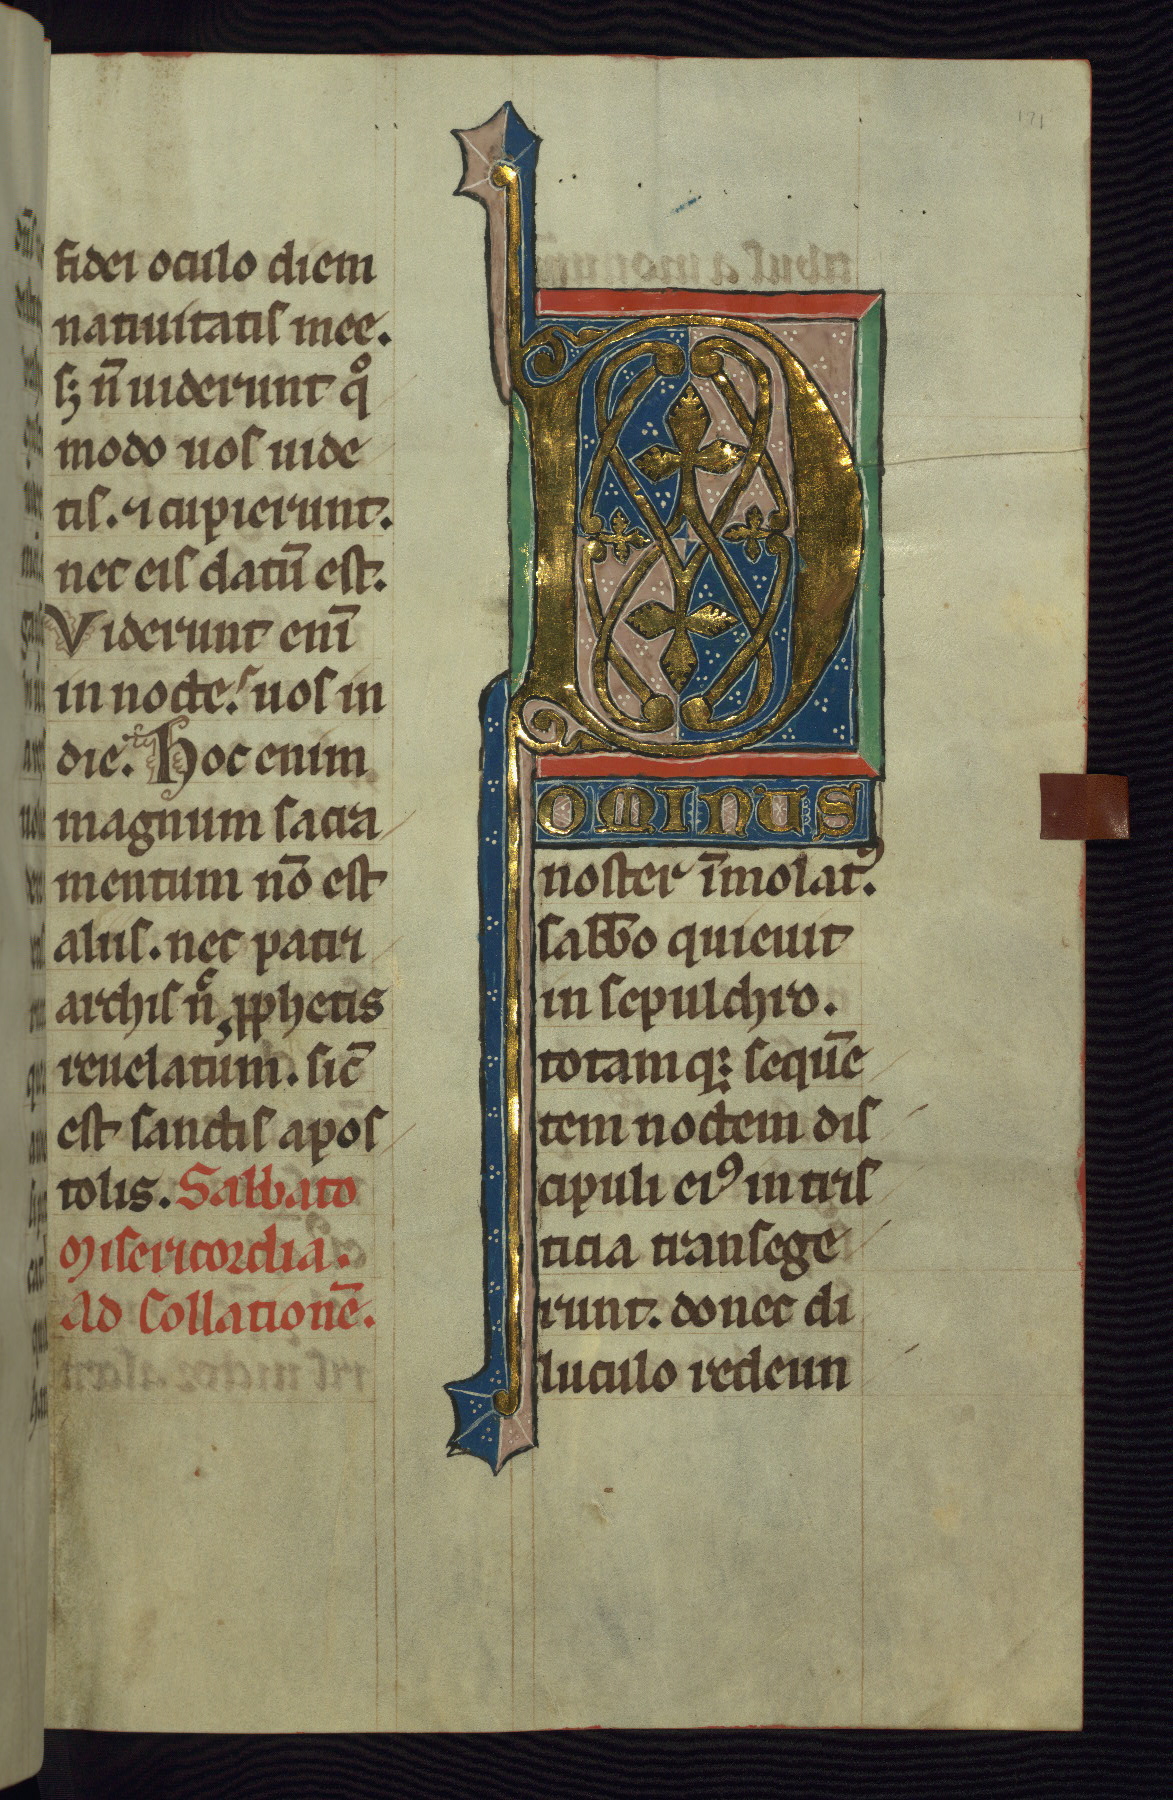 fidei oculo diem
natiuitatis mee.
sꝫ nͤ̄ uiderunt qͦ
modo uos uide
tis. ⁊ cupierunt.
nec eis datū est.
Viderunt enī
in nocte. uos in
die. Hoc enim
magnum sacra
mentum nō est
aliis. nec patri
archis ͛ prophetis
reuelatum. sic̄
est sanctis apos
tolis. Sabbato
Misericordia.
Ad Collationē.
171
D
OMINUS
noster īmolatꝰ.
sabb̄o quieuit
in sepulchro.
totamqꝫ sequē
tem noctem dis
cipuli eiꝰ in tris
ticia transege
runt. donec di
luculo redeun